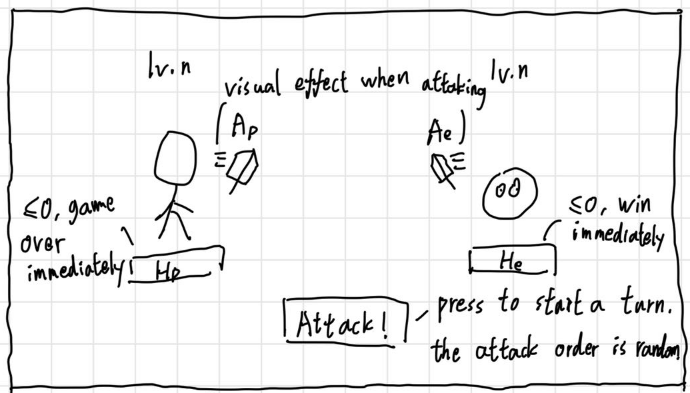 lv.n
lv.n
visual effect when attaking
Ap
Ae
≤0, game
over
immediately
Hp
≤0, win
immediately
He
Attack!
press to start a turn.
the attack order is random